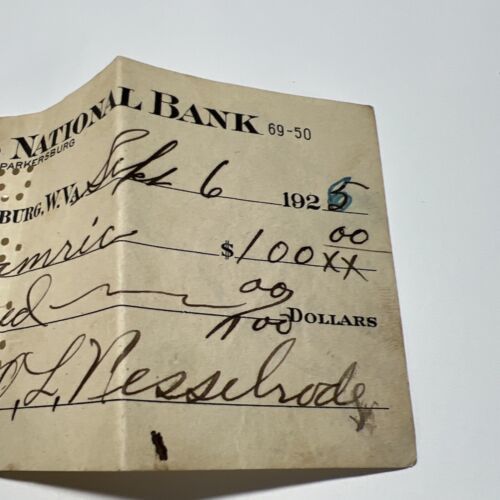 NATIONAL BANK 69-50
PARKERSBURG
BURG, W. VA. Sept 6 1925
amric $100 00/XX
ed 00/100 DOLLARS
O, L, Nesselrode